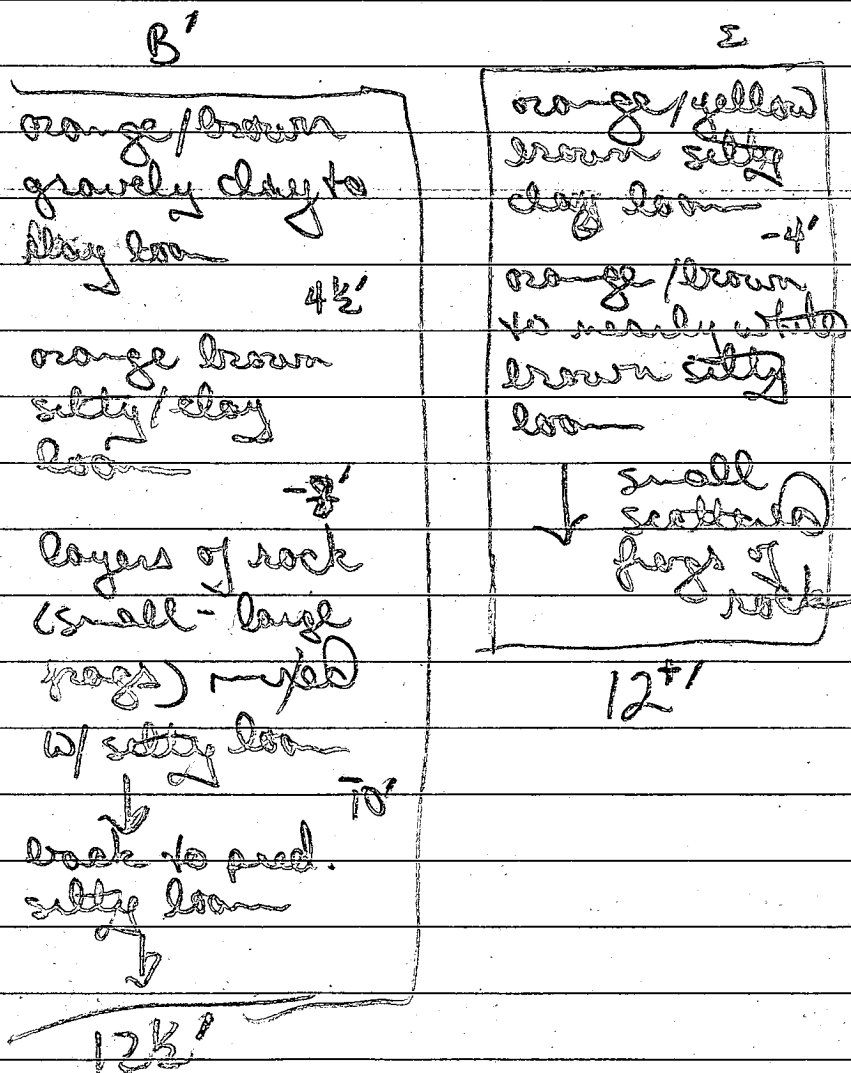 B'
orange/brown
gravely clay to
clay loam
4½'
orange brown
silty/clay
loam
-8'
layers of rock
(small - large
frags) mixed
w/ silty loam
-10'
back to pred.
silty loam
12½'
Σ
orange/yellow
brown silty
clay loam
-4'
orange/brown
to nearly white
brown silty
loam
small
scattered
frags of
rock
12+'